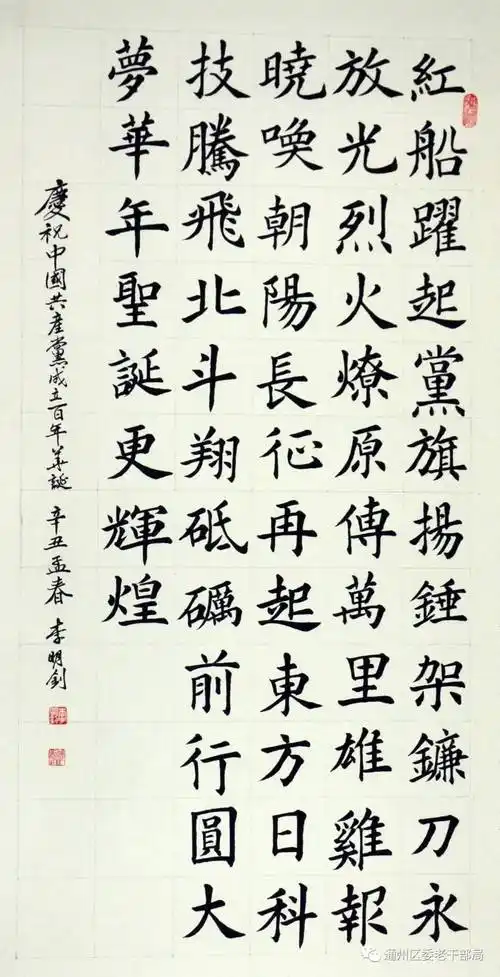 紅船躍起黨旗揚錘架鐮刀永
放光烈火燎原傳萬里雄雞報
曉喚朝陽長征再起東方日科
技騰飛北斗翔砥礪前行圓大
夢華年聖誕更輝煌
慶祝中國共產黨成立百年華誕 辛丑孟春 李明釗
通州区委老干部局